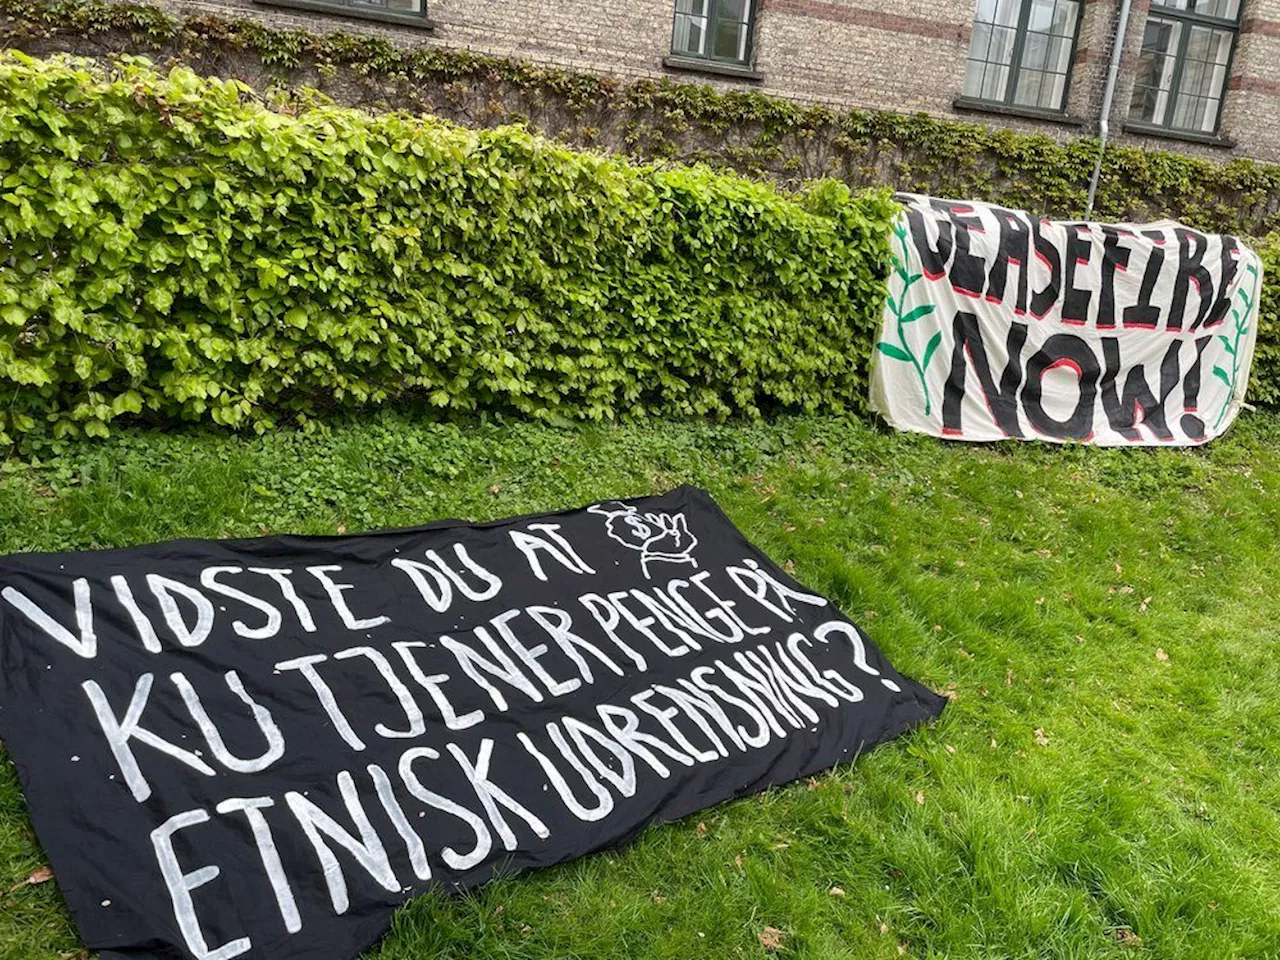 VIDSTE DU AT
KU TJENER PENGE PÅ
ETNISK UDRENSNING?
CEASEFIRE
NOW!
$